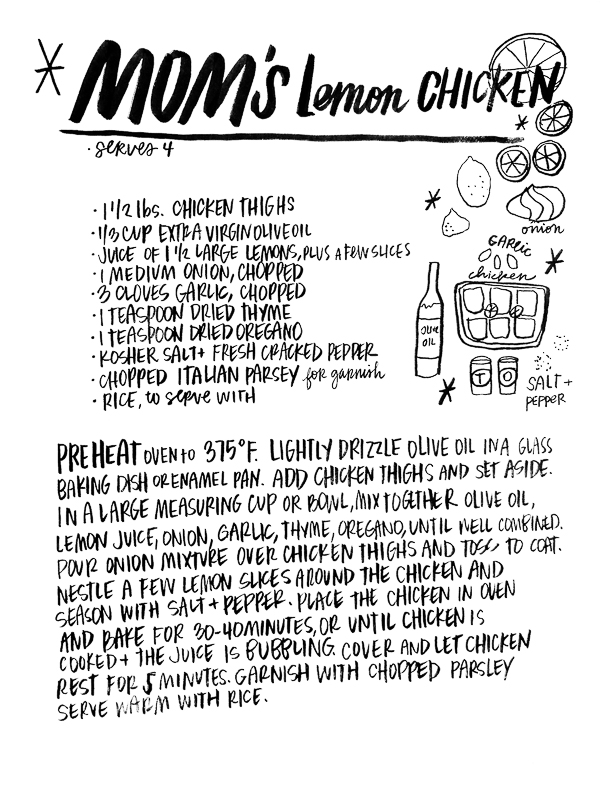 MOM's Lemon CHICKEN
· serves 4
· 1 1/2 lbs. CHICKEN THIGHS
· 1/3 CUP EXTRA VIRGIN OLIVE OIL
· JUICE OF 1 1/2 LARGE LEMONS, PLUS A FEW SLICES
· 1 MEDIUM ONION, CHOPPED
· 3 CLOVES GARLIC, CHOPPED
· 1 TEASPOON DRIED THYME
· 1 TEASPOON DRIED OREGANO
· KOSHER SALT + FRESH CRACKED PEPPER
· CHOPPED ITALIAN PARSEY for garnish
· RICE, to serve WITH
onion
GARLIC
chicken
OLIVE
OIL
T O
SALT +
PEPPER
PREHEAT OVEN to 375°F. LIGHTLY DRIZZLE OLIVE OIL IN A GLASS
BAKING DISH OR ENAMEL PAN. ADD CHICKEN THIGHS AND SET ASIDE.
IN A LARGE MEASURING CUP OR BOWL, MIX TOGETHER OLIVE OIL,
LEMON JUICE, ONION, GARLIC, THYME, OREGANO, UNTIL WELL COMBINED.
POUR ONION MIXTURE OVER CHICKEN THIGHS AND TOSS TO COAT.
NESTLE A FEW LEMON SLICES AROUND THE CHICKEN AND
SEASON WITH SALT + PEPPER. PLACE THE CHICKEN IN OVEN
AND BAKE FOR 30-40 MINUTES, OR UNTIL CHICKEN IS
COOKED + THE JUICE IS BUBBLING. COVER AND LET CHICKEN
REST FOR 5 MINUTES. GARNISH WITH CHOPPED PARSLEY
SERVE WARM WITH RICE.